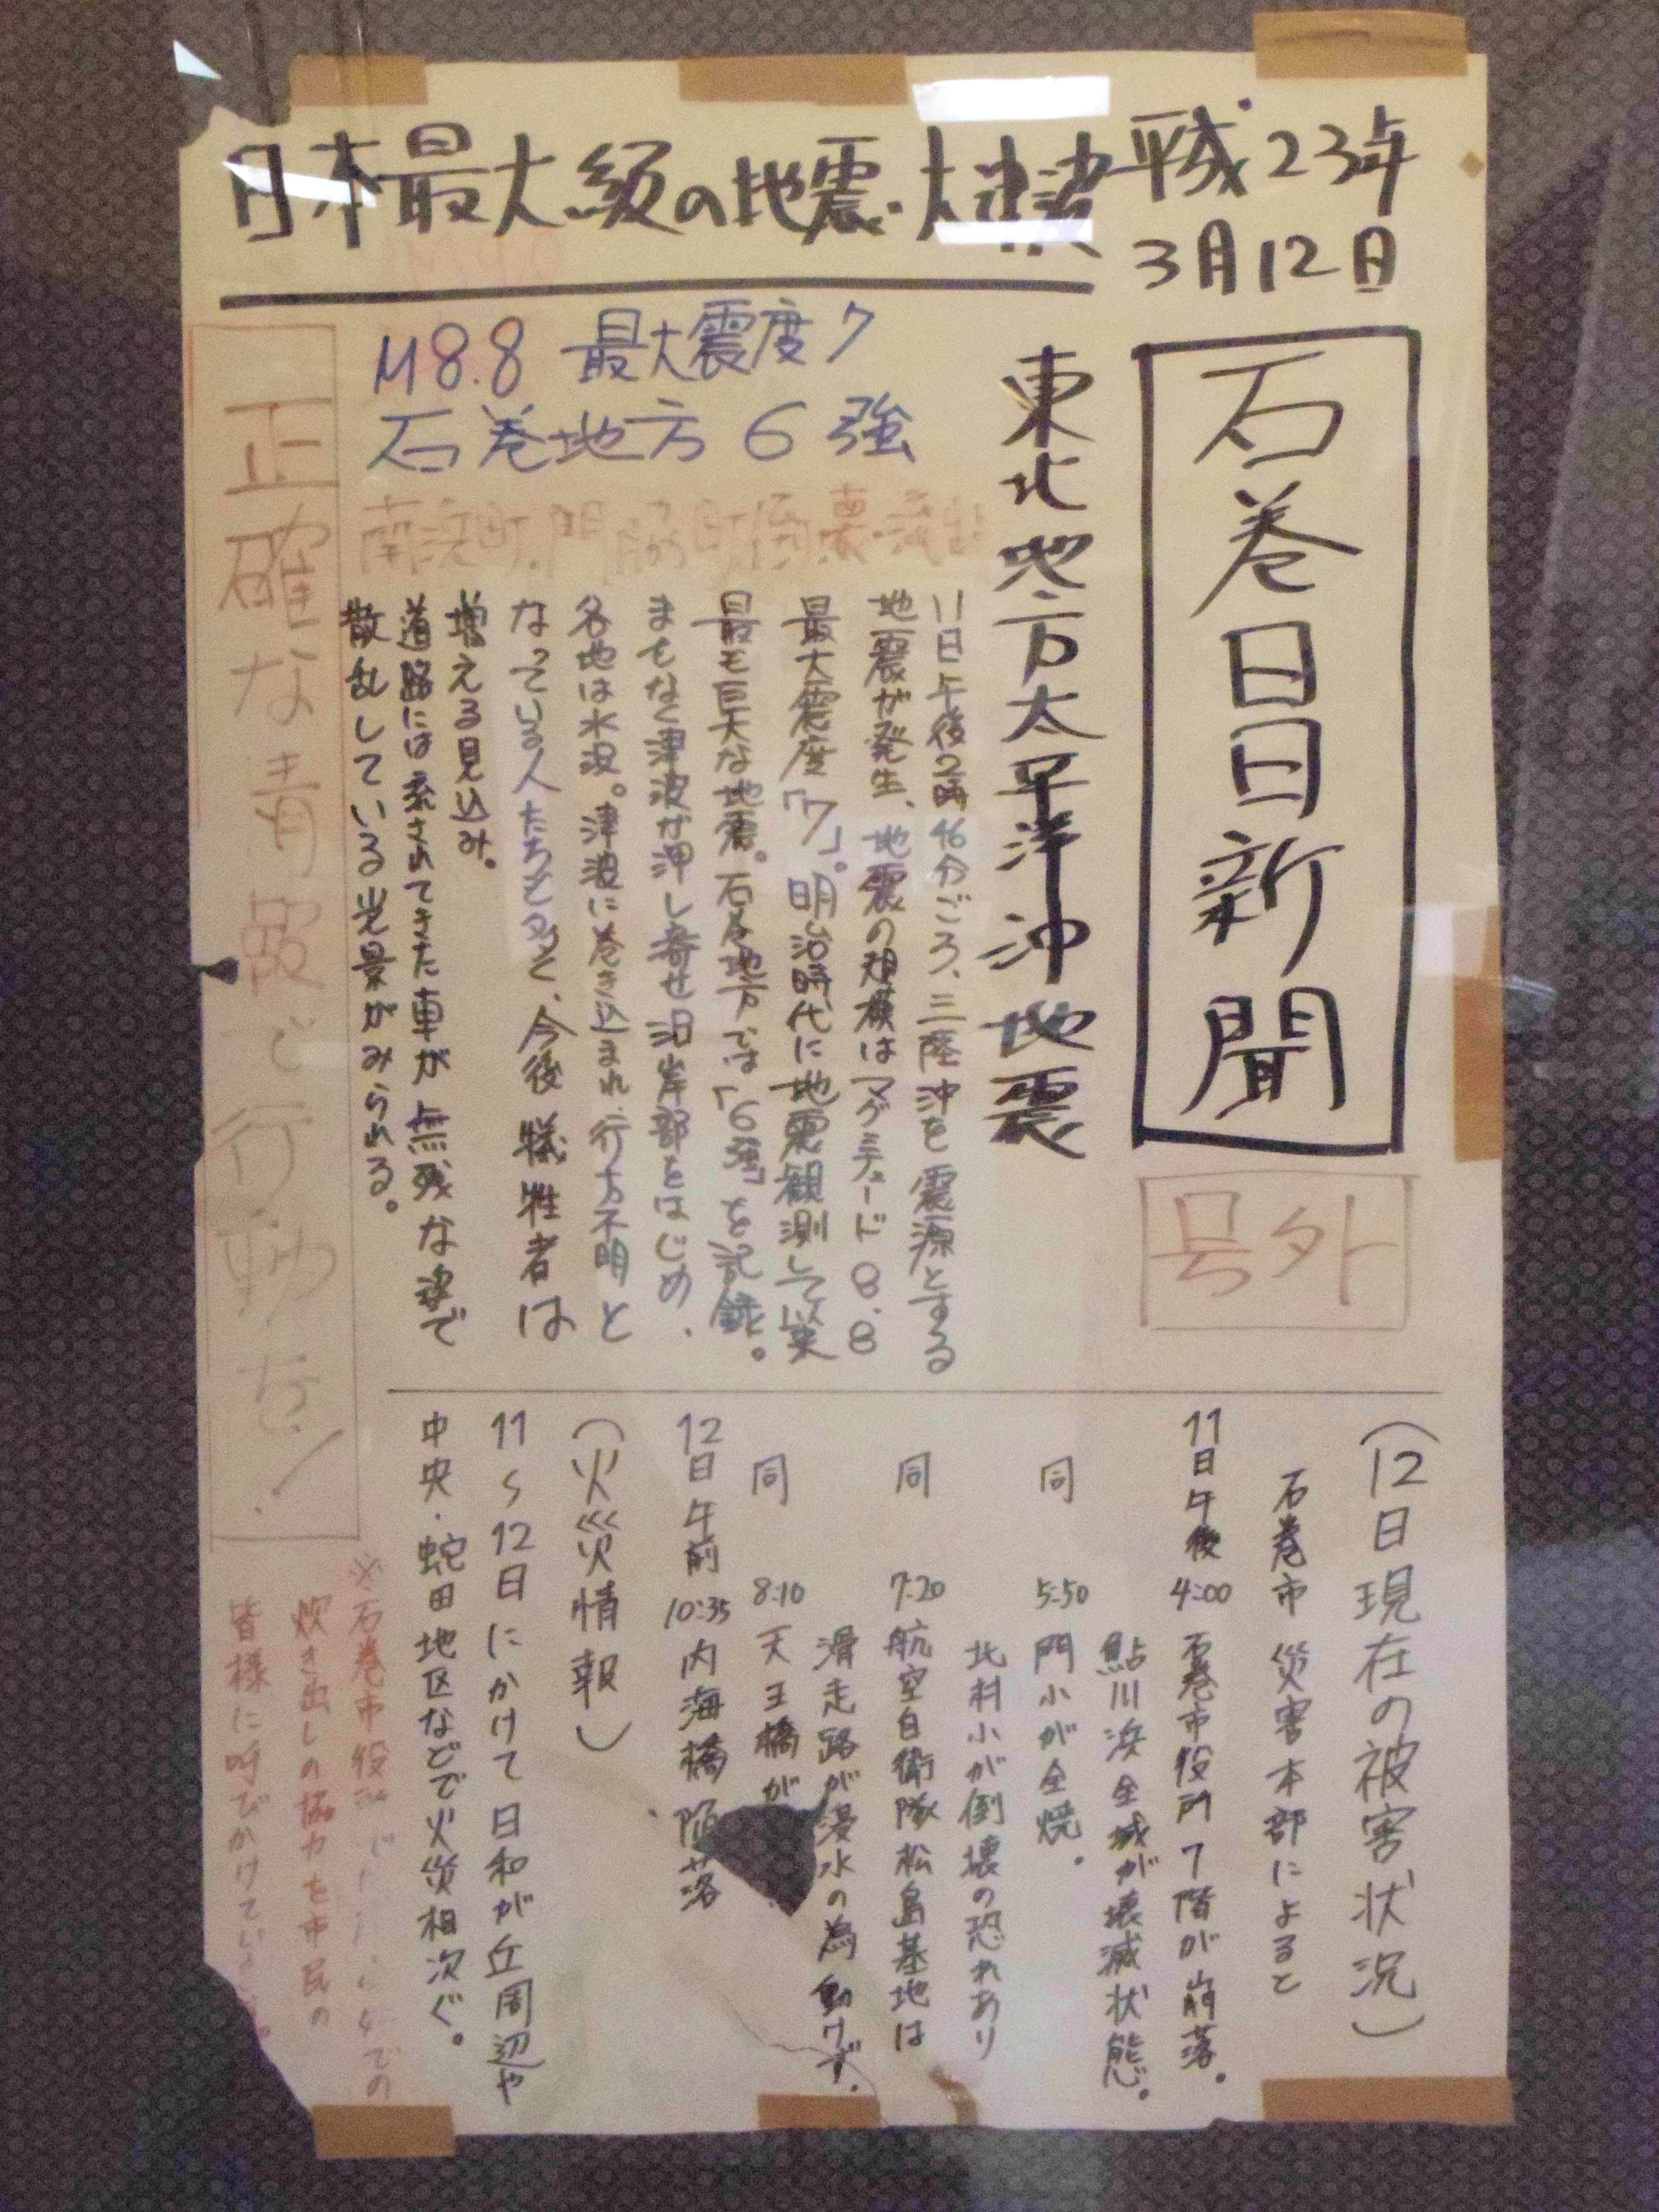 日本最大級の地震・大津波
平成23年
3月12日
石巻日日新聞
号外
東北地方太平洋沖地震
M8.8 最大震度7
石巻地方 6強
南浜町・門脇町倒壊・流出
11日午後2時46分ごろ、三陸沖を震源とする
地震が発生、地震の規模はマグニチュード8.8
最大震度「7」。明治時代に地震観測して以来
最も巨大な地震。石巻地方では「6強」を記録。
まもなく津波が押し寄せ沿岸部をはじめ、
各地は水没。津波に巻き込まれ、行方不明と
なっている人たちも多く、今後犠牲者は
増える見込み。
道路には流されてきた車が無残な姿で
散乱している光景がみられる。
正確な情報で行動を!
(12日現在の被害状況)
石巻市災害本部によると
11日午後 4:00 石巻市役所7階が崩落。
鮎川浜全域が壊滅状態。
同 5:50 門小が全焼。
北村小が倒壊の恐れあり
同 7:20 航空自衛隊松島基地は
滑走路が浸水の為動けず.
同 8:10 天王橋が
12日午前 10:35 内海橋陥落
(火災情報)
11〜12日にかけて日和が丘周辺や
中央・蛇田地区などで火災相次ぐ。
※石巻市役所 での
炊き出しの協力を市民の
皆様に呼びかけています。